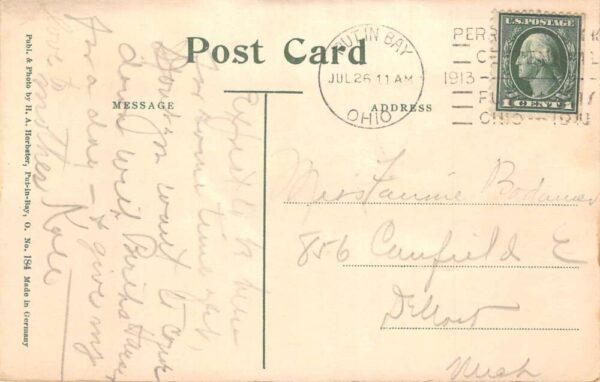 Post Card
MESSAGE
ADDRESS
PUT IN BAY
JUL 26 11 AM
OHIO
PERR
1913
OHIO
U.S. POSTAGE
1 CENT 1
Expect to be here
for some time yet.
want to come
down with
for a day - & give my
love to mother Kate
Miss Fannie
856 Canfield E
Detroit
Mich
Publ. & Photo by H. A. Herbster, Put-in-Bay, O. No. 184 Made in Germany